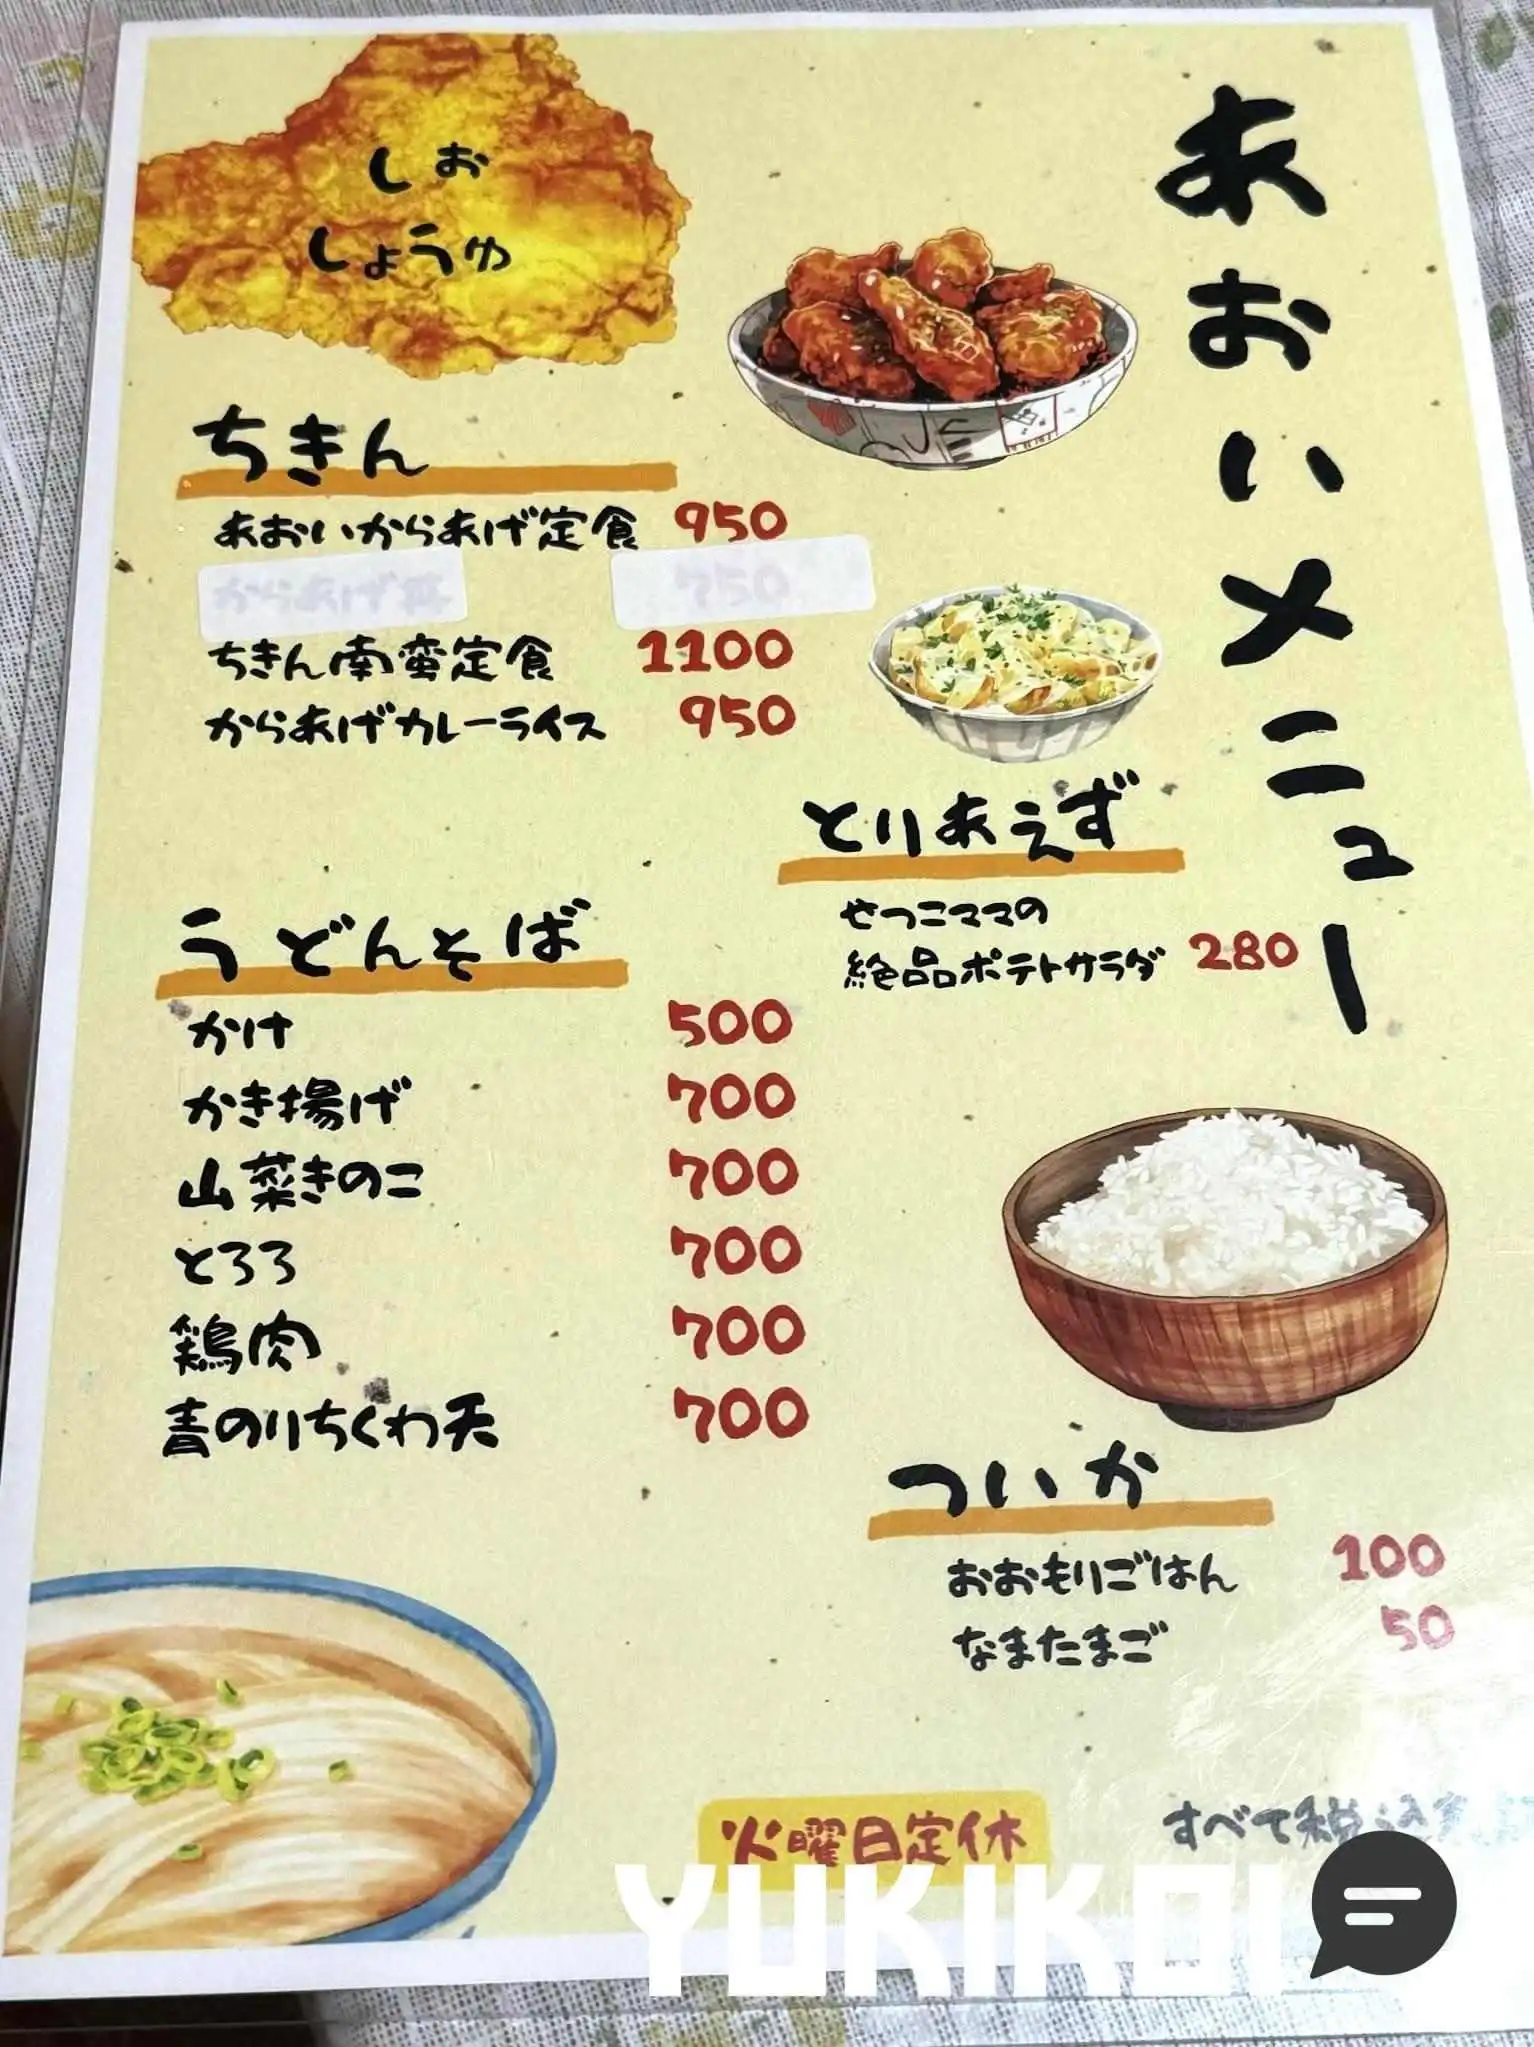 あおいメニュー
しお
しょうゆ
ちきん
あおいからあげ定食 950
からあげ丼 750
ちきん南蛮定食 1100
からあげカレーライス 950
とりあえず
せつこママの
絶品ポテトサラダ 280
うどんそば
かけ 500
かき揚げ 700
山菜きのこ 700
とろろ 700
鶏肉 700
青のりちくわ天 700
ついか
おおもりごはん 100
なまたまご 50
火曜日定休
すべて税込
YUKIKOI